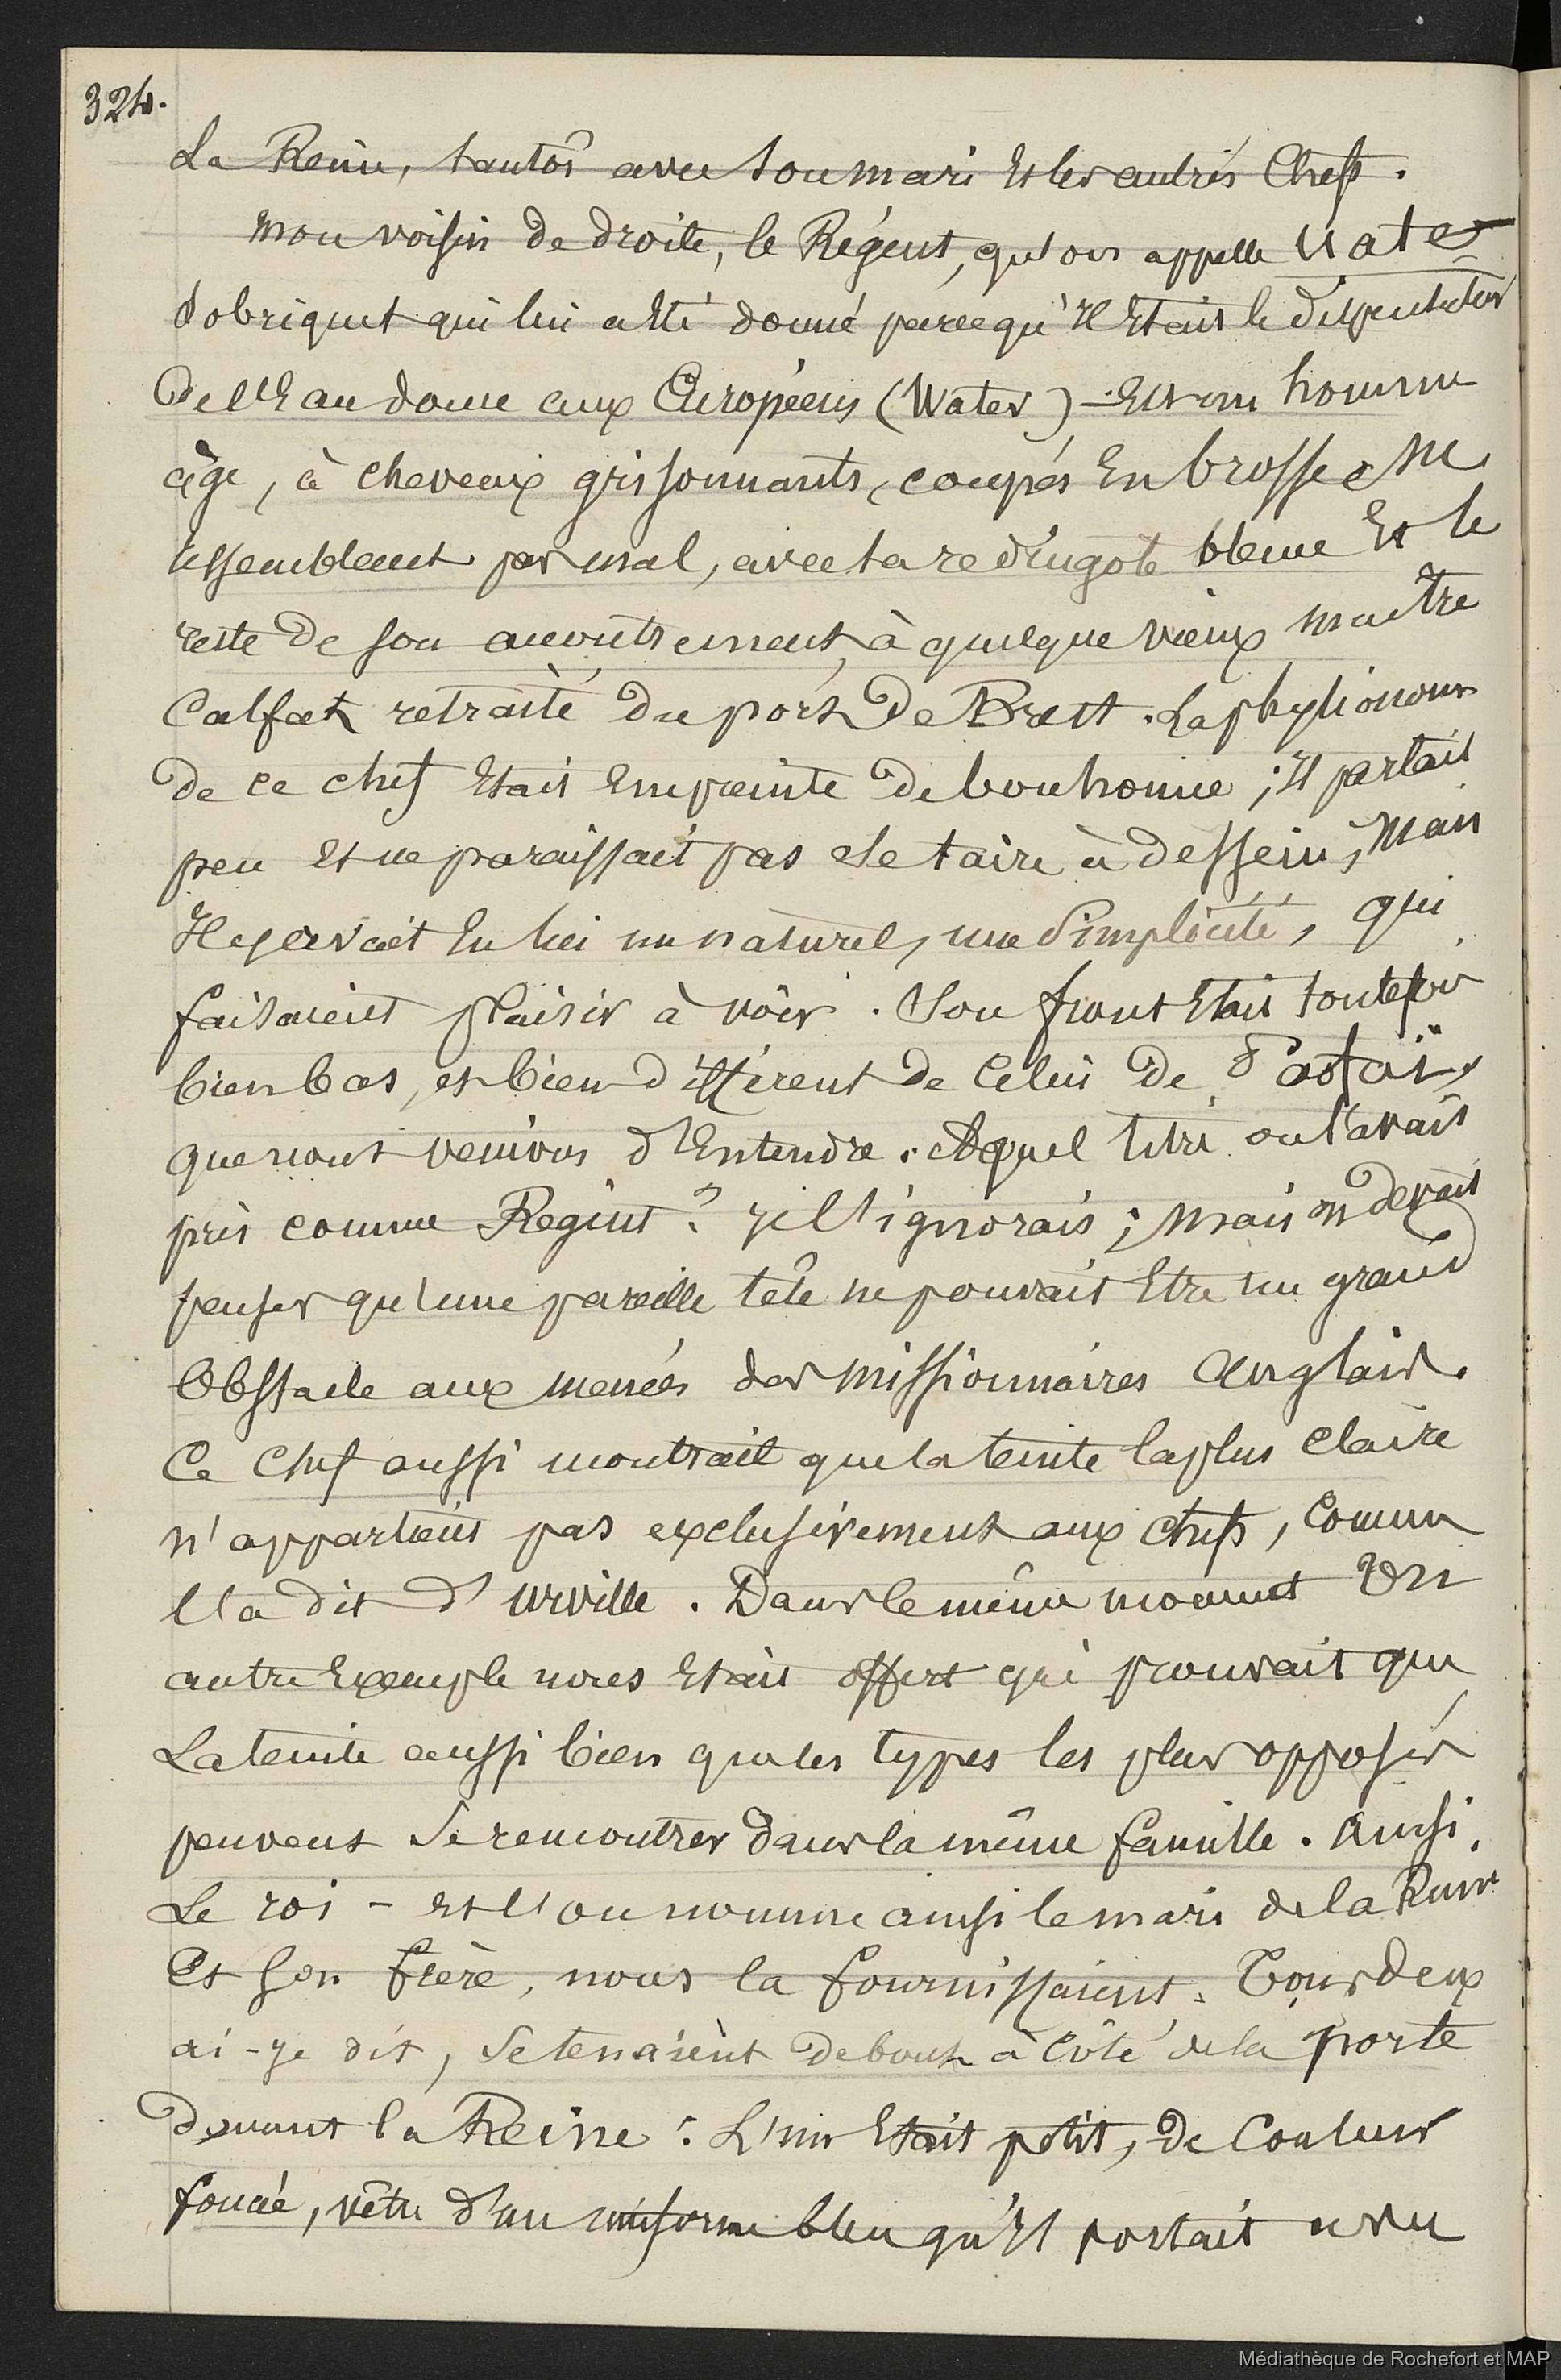 324.
La Reine, tantôt avec son mari et les autres Chefs.
Mon voisin de droite, le Régent, qu'on appelle Uata
Sobriquet qui lui a été donné parcequ'il était le dispensateur
De l'Eau douce aux Européens (Water) - Est un homme
âgé, à cheveux grisonnants, coupés En brosse &
ressemblant pas mal, avec sa redingote bleue Et le
reste de son accoutrement, à quelque vieux maître
Calfat retraité du port De Brest. La physionomie
de ce chef Etait Empreinte De bonhomie ; Il parlait
peu Et ne paraissait pas se taire à dessein, Mais
Il y avait En lui un naturel, une Simplicité, qui
faisaient plaisir à voir. Son front Etait toutefois
bien bas, et bien différent de Celui De Tatai,
que nous venions d'Entendre. A quel titre on l'avait
pris comme Régent ? je l'ignorais ; Mais on devait
penser qu'une pareille tête ne pouvait Etre un grand
Obstacle aux menées des Missionnaires Anglais.
Ce Chef aussi montrait que la teinte la plus claire
n'appartient pas exclusivement aux chefs, Comme
l'a dit d'Urville. Dans le même moment Un
autre Exemple nous Etait offert qui prouvait que
La teinte aussi bien que les types les plus opposés
peuvent Se rencontrer dans la même famille. Ainsi,
Le roi - Et l'on nomme ainsi le mari de la Reine
Et Son frère, nous la fournissaient. Tous deux
ai-je dit, Se tenaient Debout à Côté de la porte
devant la Reine : L'un Etait petit, De Couleur
foncée, vêtu d'un uniforme bleu qu'Il portait avec
Médiathèque de Rochefort et MAP